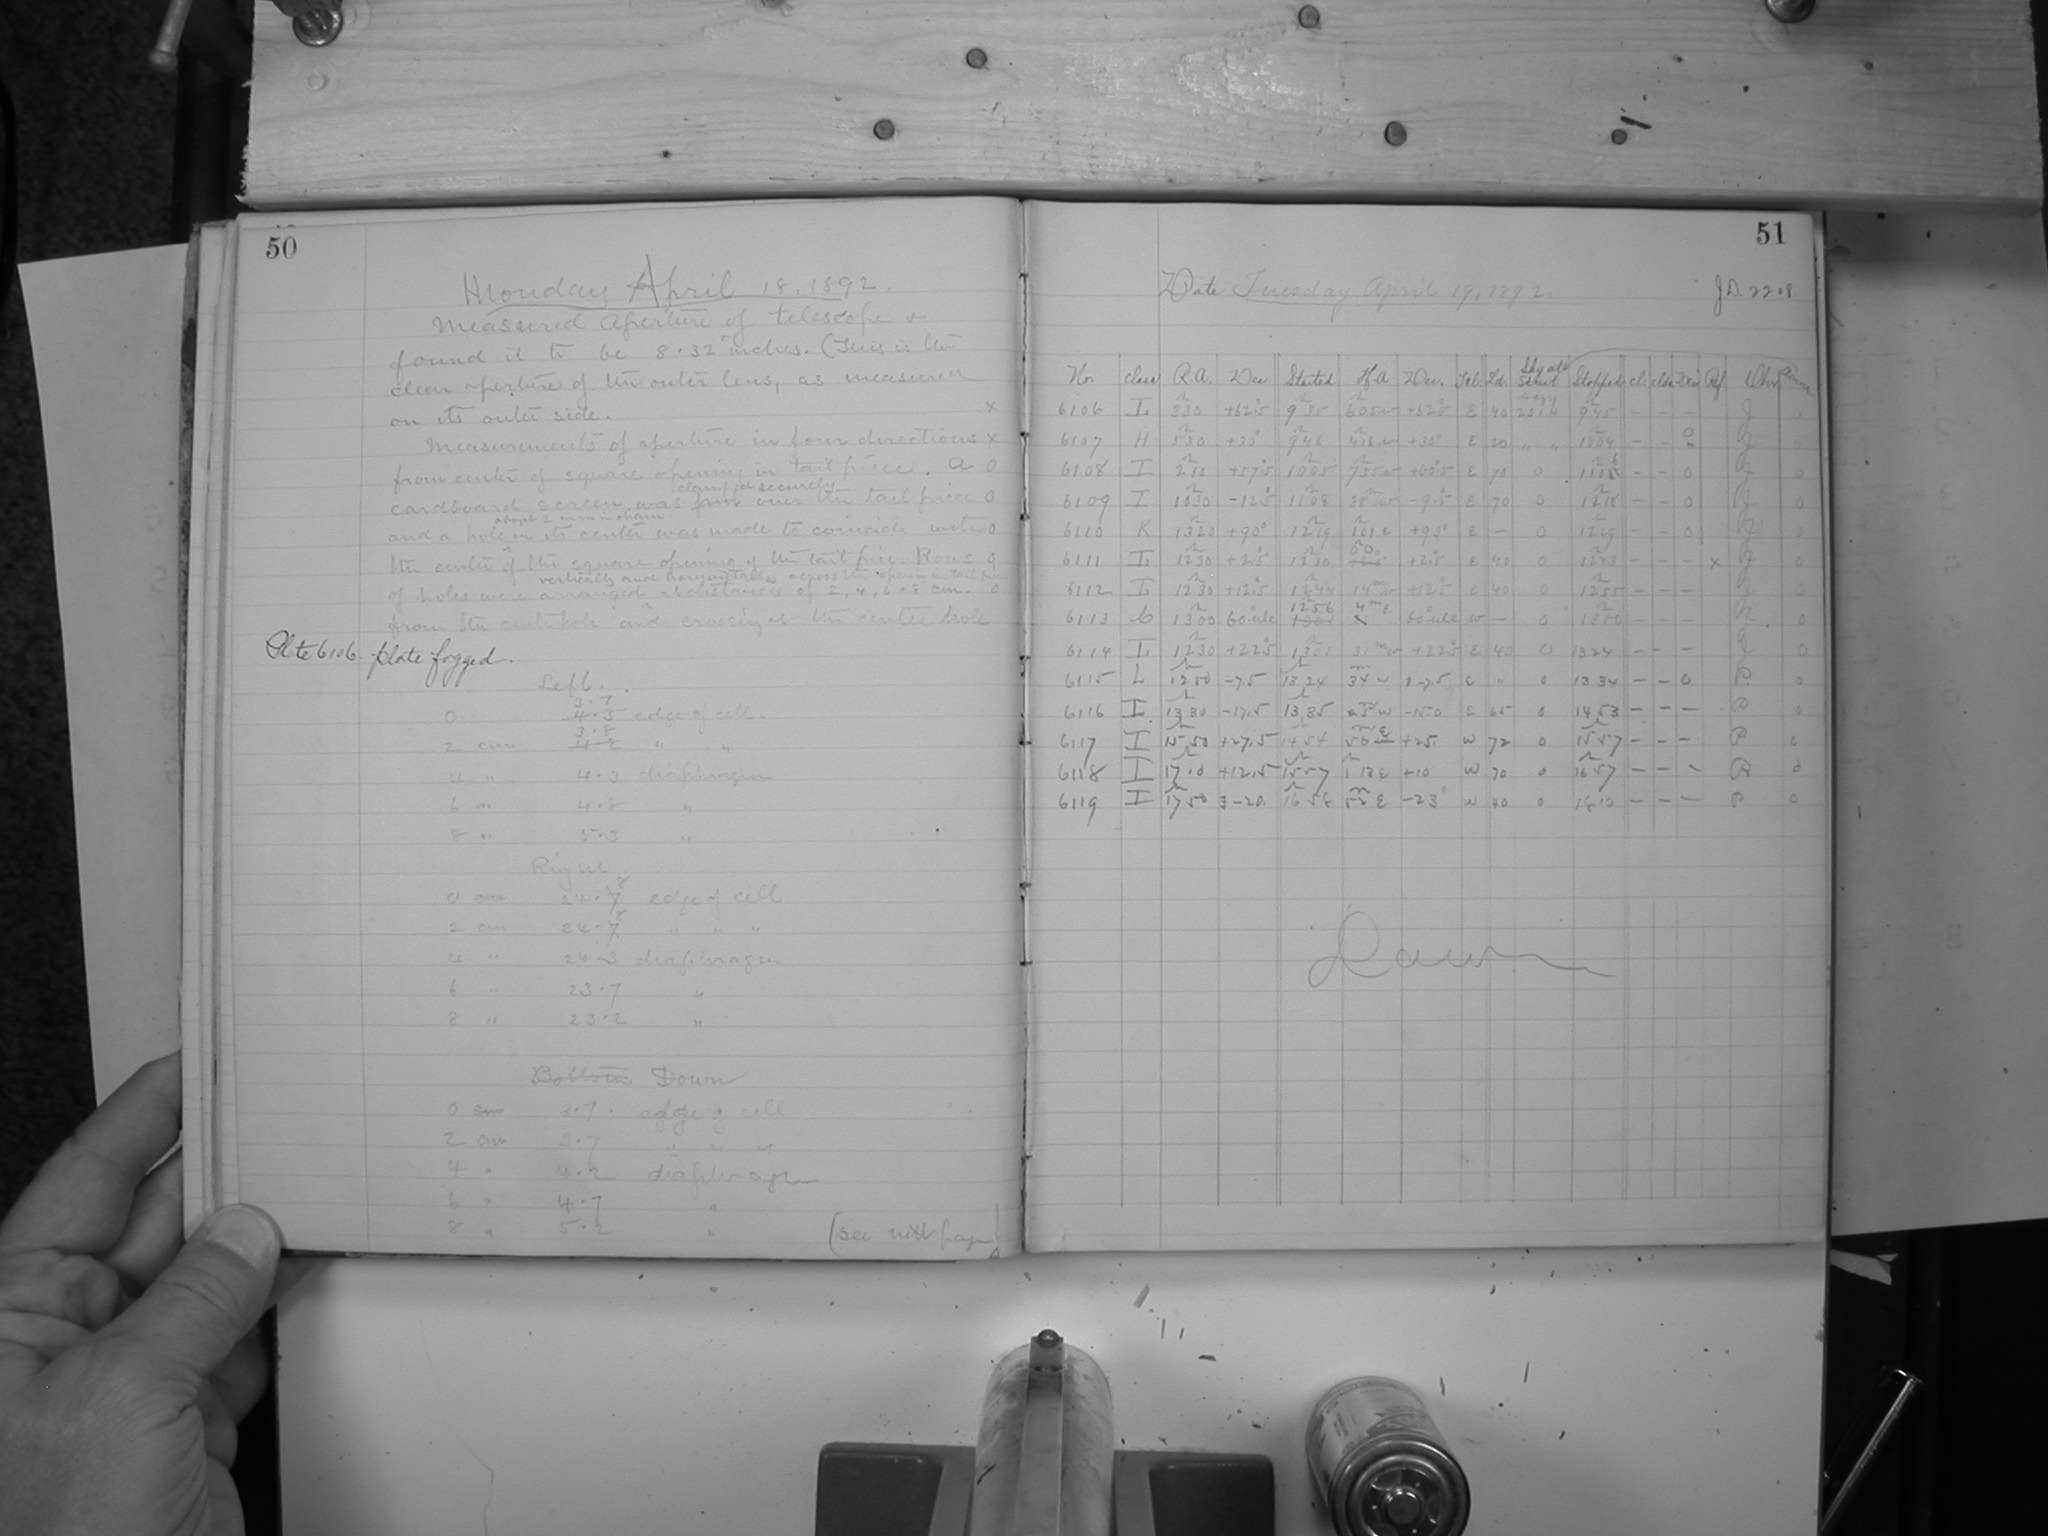 50
Monday April 18, 1892.
Measured aperture of telescope &
found it to be 8.32 inches. (This is the
clear aperture of the outer lens, as measured
on its outer side. x
Measurements of aperture in four directions x
from center of square opening in tail piece. A 0
clamped securely
cardboard screen was put over the tail piece 0
about 2 mm in diam.
and a hole in its center was made to coincide with 0
the center of the square opening of the tail piece. Rows 0
vertically and horizontally across the opening in tail piece
of holes were arranged at distances of 2, 4, 6 & 8 cm. 0
from the center hole and crossing at the center hole
Plate 6106. plate fogged.
Left.
3.7
0 4.3 edge of cell.
3.8
2 cm 4.2 " "
4 " 4.3 diaphragm
6 " 4.8 "
8 " 5.3 "
Right
0 cm 24.7 8 edge of cell
2 cm 24.7 8 " " "
4 " 24.3 diaphragm
6 " 23.7 "
8 " 23.2 "
Bottom Down
0 cm 3.7. edge of cell
2 cm 3.7 " " "
4 " 4.2 diaphragm
6 " 4.7 "
8 " 5.2 "
(see next page)
51
Date Tuesday April 19, 1892.
No. Class R.A. Dec. Started H.A. Dec. Tel. Ld. Sky at Start Stopped Cl. Clds. Dew Rf. Obs.
6106 I 330 +62.5 9 35 605 w +62.5 E 40 Hazy 9 45 – – – J 0
6107 H 530 +30° 9 46 416 w +30° E 20 " " 1004 – – 0 J 0
6108 I 210 +57.5 1005 755 w +60.5 E 70 0 – – 0 J 0
6109 I 1030 –12.5 1108 38 w –9.5 E 70 0 1218 – – 0 J 0
6110 K 1320 +90° 1219 101 E +90° E – 0 1229 – – 0 J 0
6111 I 1230 +2.5 1230 0 0 +2.5 E 40 0 1243 – – – x J 0
6112 I 1230 +12.5 1244 14 m w +12.5 E 40 0 1255 – – – J 0
6113 C 1300 60° 1256 4 m E 60° w – 0 1300 – – – J 0
6114 I 1230 +22.5 1301 31 m w +22.5 E 40 0 1324 – – – J 0
6115 L 1250 –7.5 13 24 34 w –7.5 E " 0 13 34 – – 0 P 0
6116 I 1330 –17.5 13 35 w –15.0 E 65 0 14 53 – – – P 0
6117 I 15 50 +27.5 14 54 56 E +25. w 72 0 15 57 – – – P 0
6118 I 17.0 +12.5 15 57 1 12 E +10 w 70 0 16 57 – – – P 0
6119 I 17 50 –20. 16 58 52 E –23° w 40 0 18 10 – – – P 0
Dawn